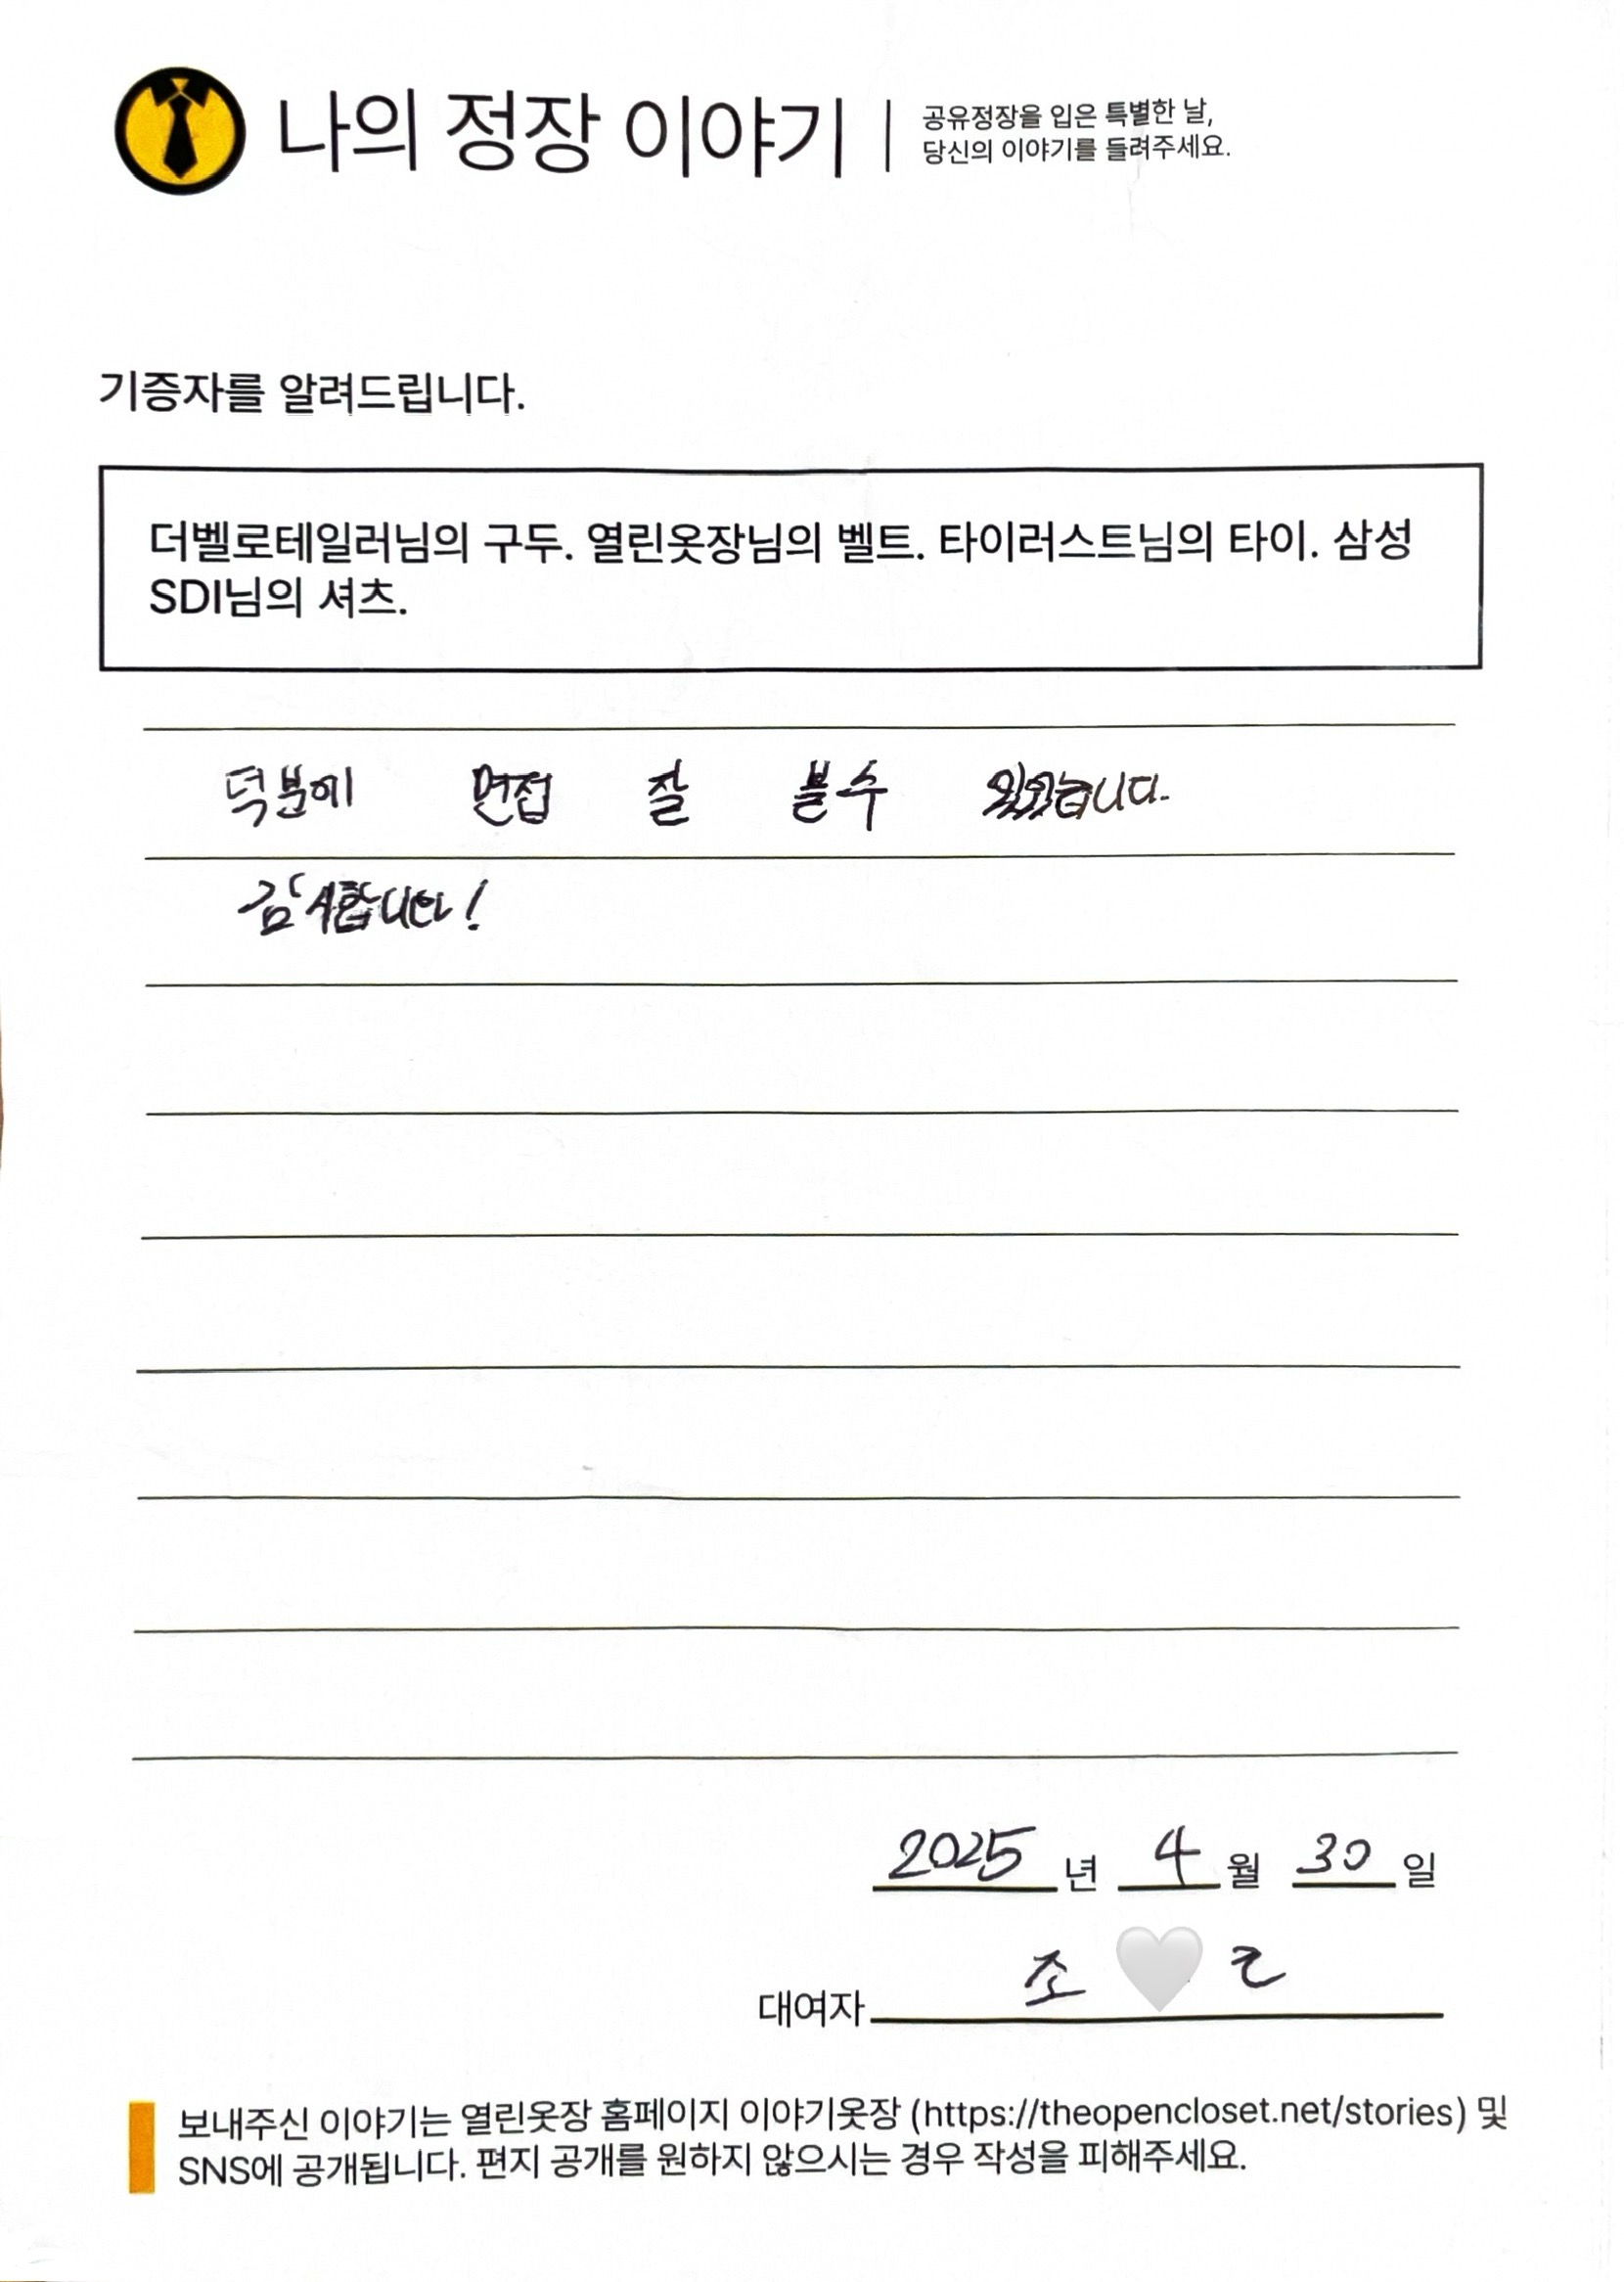 나의 정장 이야기
공유정장을 입은 특별한 날,
당신의 이야기를 들려주세요.
기증자를 알려드립니다.
더벨로테일러님의 구두. 열린옷장님의 벨트. 타이러스트님의 타이. 삼성
SDI님의 셔츠.
덕분에 면접 잘 볼수 있었습니다.
감사합니다!
2025년 4월 30일
대여자 조 🤍 ㄹ
보내주신 이야기는 열린옷장 홈페이지 이야기옷장 (https://theopencloset.net/stories) 및
SNS에 공개됩니다. 편지 공개를 원하지 않으시는 경우 작성을 피해주세요.